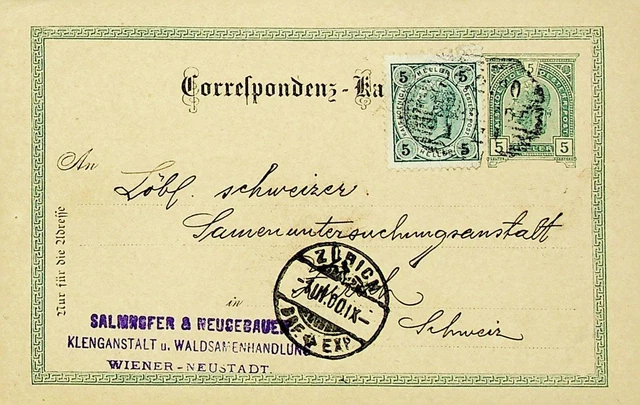 Correspondenz-Ka
5 HELLER 5
5 HELLER 5
5
5 HELLER 5
An
Löbl. schweizer
Samenuntersuchungsanstalt
Nur für die Adresse
in
ZÜRICH
IX
BRF. EXP.
Schweiz
SALMHOFER & NEUGEBAUER
KLENGANSTALT u. WALDSAMENHANDLUNG
WIENER-NEUSTADT.